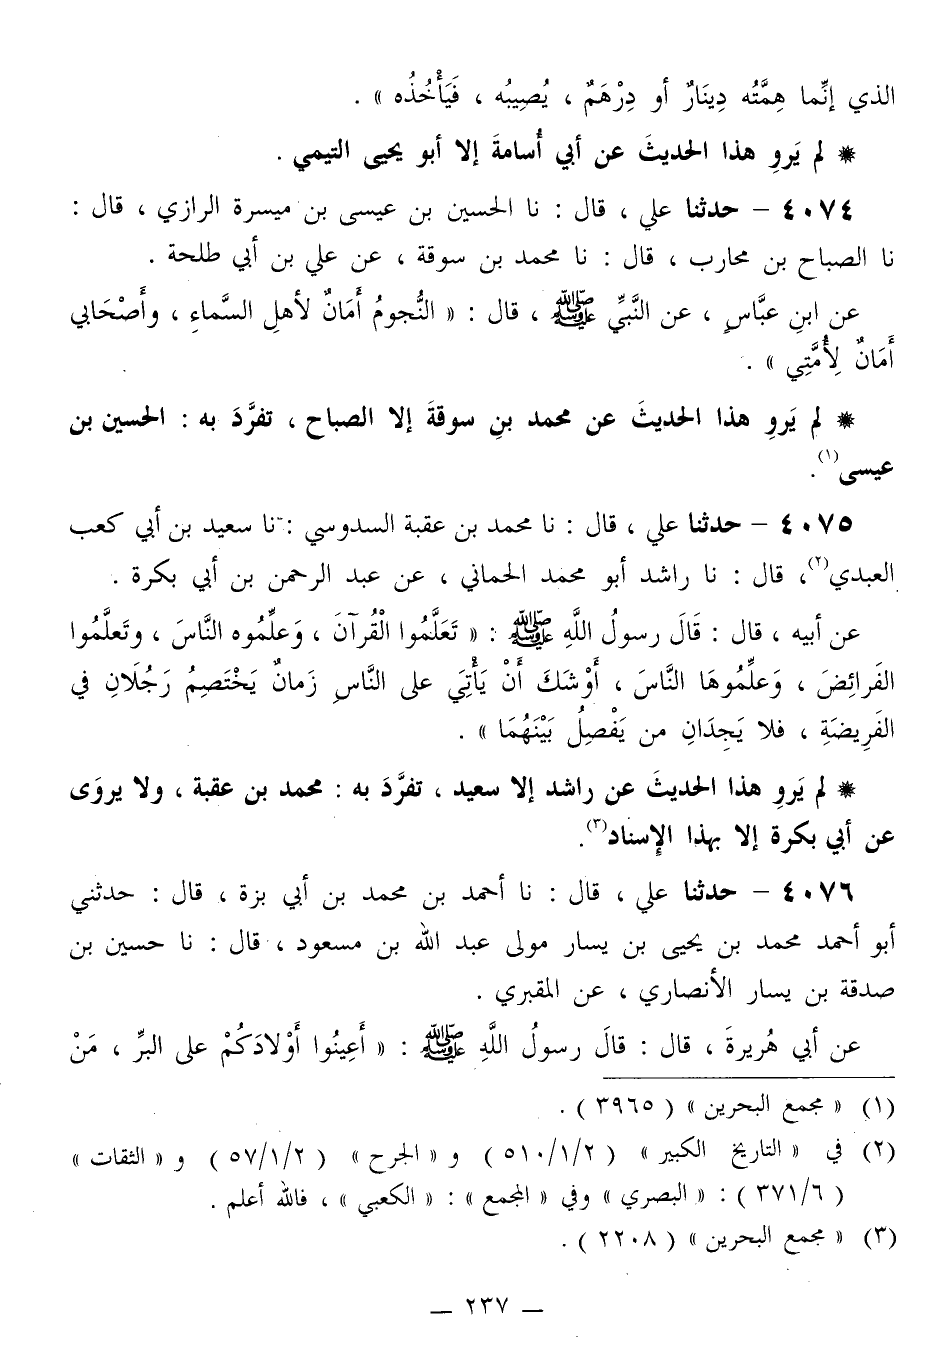 الذي إنَّما هِمَّتُه دِينَارٌ أو دِرْهَمٌ ، يُصِيبُه ، فَيَأْخُذُه » .
* لم يَروِ هذا الحديثَ عن أبي أُسامةَ إلا أبو يحيى التيمي .
٤٠٧٤ – حدثنا علي ، قال : نا الحسين بن عيسى بن ميسرة الرازي ، قال :
نا الصباح بن محارب ، قال : نا محمد بن سوقة ، عن علي بن أبي طلحة .
عن ابنِ عبَّاسٍ ، عن النَّبيِّ ﷺ ، قال : « النُّجومُ أَمَانٌ لأهلِ السَّماءِ ، وأَصْحَابي
أَمَانٌ لِأُمَّتِي » .
* لم يَروِ هذا الحديثَ عن محمد بنِ سوقةَ إلا الصباح ، تفرَّدَ به : الحسين بن
عيسى(١).
٤٠٧٥ – حدثنا علي ، قال : نا محمد بن عقبة السدوسي : نا سعيد بن أبي كعب
العبدي(٢)، قال : نا راشد أبو محمد الحماني ، عن عبد الرحمن بن أبي بكرة .
عن أبيه ، قال : قَالَ رسولُ اللَّهِ ﷺ : « تَعَلَّمُوا الْقُرآنَ ، وَعلِّمُوه النَّاسَ ، وتَعلَّمُوا
الفَرائِضَ ، وَعلِّمُوهَا النَّاسَ ، أَوْشَكَ أَنْ يَأْتِيَ على النَّاسِ زَمانٌ يَخْتَصِمُ رَجُلَانِ في
الفَرِيضَةِ ، فلا يَجِدَانِ من يَفْصِلُ بَيْنَهُمَا » .
* لم يَروِ هذا الحديثَ عن راشد إلا سعيد ، تفرَّدَ به : محمد بن عقبة ، ولا يروَى
عن أبي بكرة إلا بهذا الإسناد(٣).
٤٠٧٦ – حدثنا علي ، قال : نا أحمد بن محمد بن أبي بزة ، قال : حدثني
أبو أحمد محمد بن يحيى بن يسار مولى عبد الله بن مسعود ، قال : نا حسين بن
صدقة بن يسار الأنصاري ، عن المقبري .
عن أبي هُريرةَ ، قال : قالَ رسولُ اللَّهِ ﷺ : « أَعِينُوا أَوْلادَكُمْ على البرِّ ، مَنْ
(١) « مجمع البحرين » ( ٣٩٦٥ ) .
(٢) في « التاريخ الكبير » ( ٥١٠/١/٢ ) و « الجرح » ( ٥٧/١/٢ ) و « الثقات »
( ٣٧١/٦ ) : « البصري » وفي « المجمع » : « الكعبي » ، فالله أعلم .
(٣) « مجمع البحرين » ( ٢٢٠٨ ) .
— ٢٣٧ —